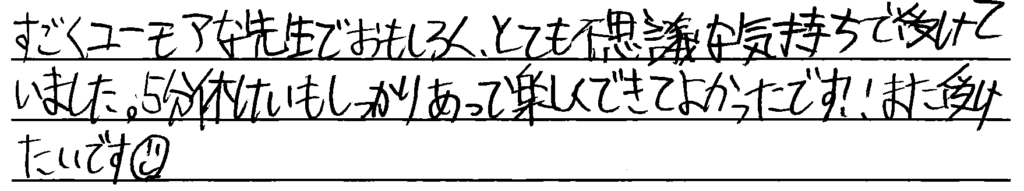 すごくユーモアな先生でおもしろく、とても不思議な気持ちで受けて
いました。5分休けいもしっかりあって楽しくできてよかったです!!また受け
たいです